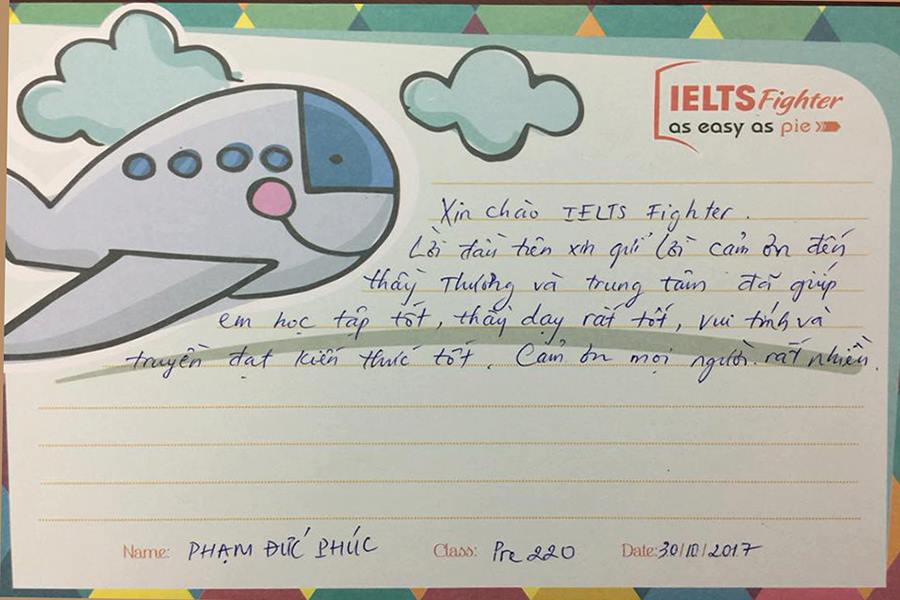 IELTS Fighter
as easy as pie
Xin chào IELTS Fighter.
Lời đầu tiên xin gửi lời cảm ơn đến
thầy Thưởng và trung tâm đã giúp
em học tập tốt, thầy dạy rất tốt, vui tính và
truyền đạt kiến thức tốt. Cảm ơn mọi người rất nhiều.
Name: PHẠM ĐỨC PHÚC Class: Pre 220 Date: 30/10/2017